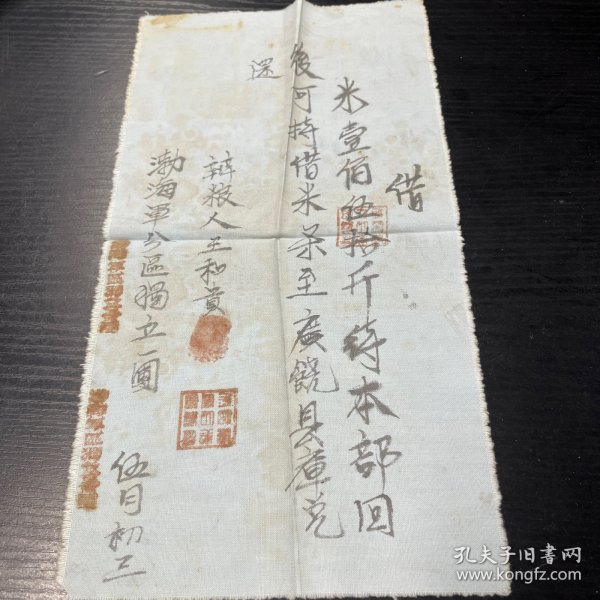 借
米壹佰伍拾斤待本部回
後可持借米条至廣饒县庫兑
還
辦粮人王和貴
渤海軍分區獨立一團
伍月初三
孔夫子旧书网
www.kongfz.com